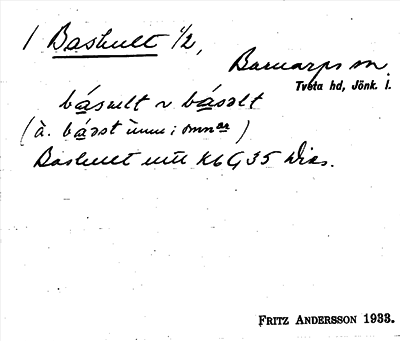 1 Bashult 1/2,
Barnarps sn.
Tveta hd, Jönk. l.
båsult ~ båsolt
(å. båsst
Bashult utt KbG 35
FRITZ ANDERSSON 1933.